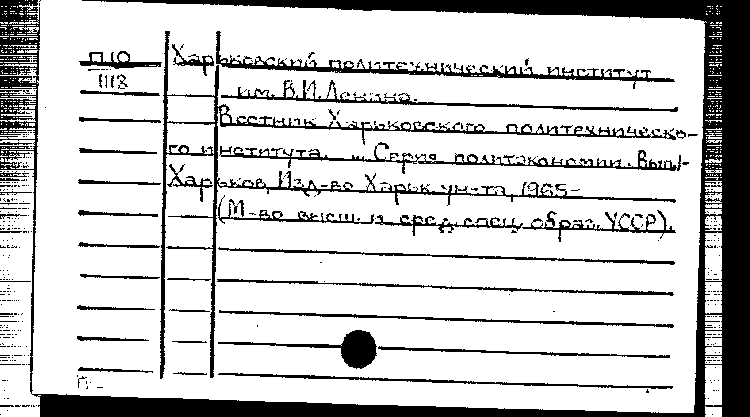 П10 Харьковский политехнический институт
1118 им. В.И.Ленина.
Вестник Харьковского политехническо-
го института. ... Серия политэкономии. Вып.1-
Харьков, Изд-во Харьк. ун-та, 1965-
(М-во высш. и сред. спец. образ. УССР).
П-